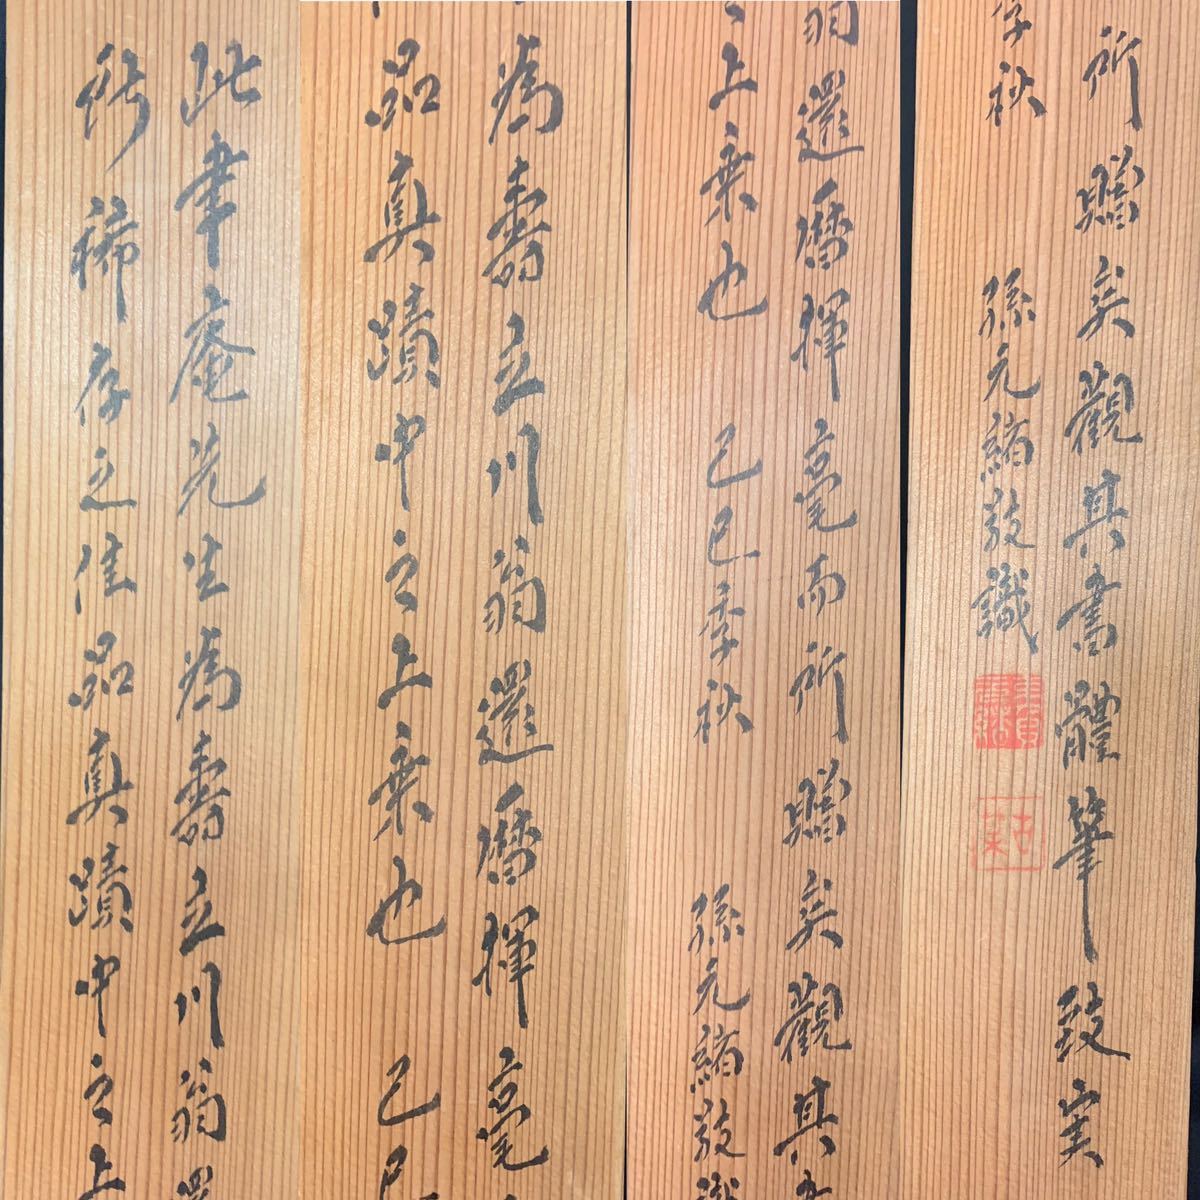 此聿庵先生為壽立川翁還
稀存之佳品真蹟中之上
為壽立川翁還暦揮毫
品真蹟中之上乗也 己巳
翁還暦揮毫而所贈矣觀其書
之上乗也 己巳季秋 孫元緒敬識
所贈矣觀其書體筆致実
季秋 孫元緒敬識